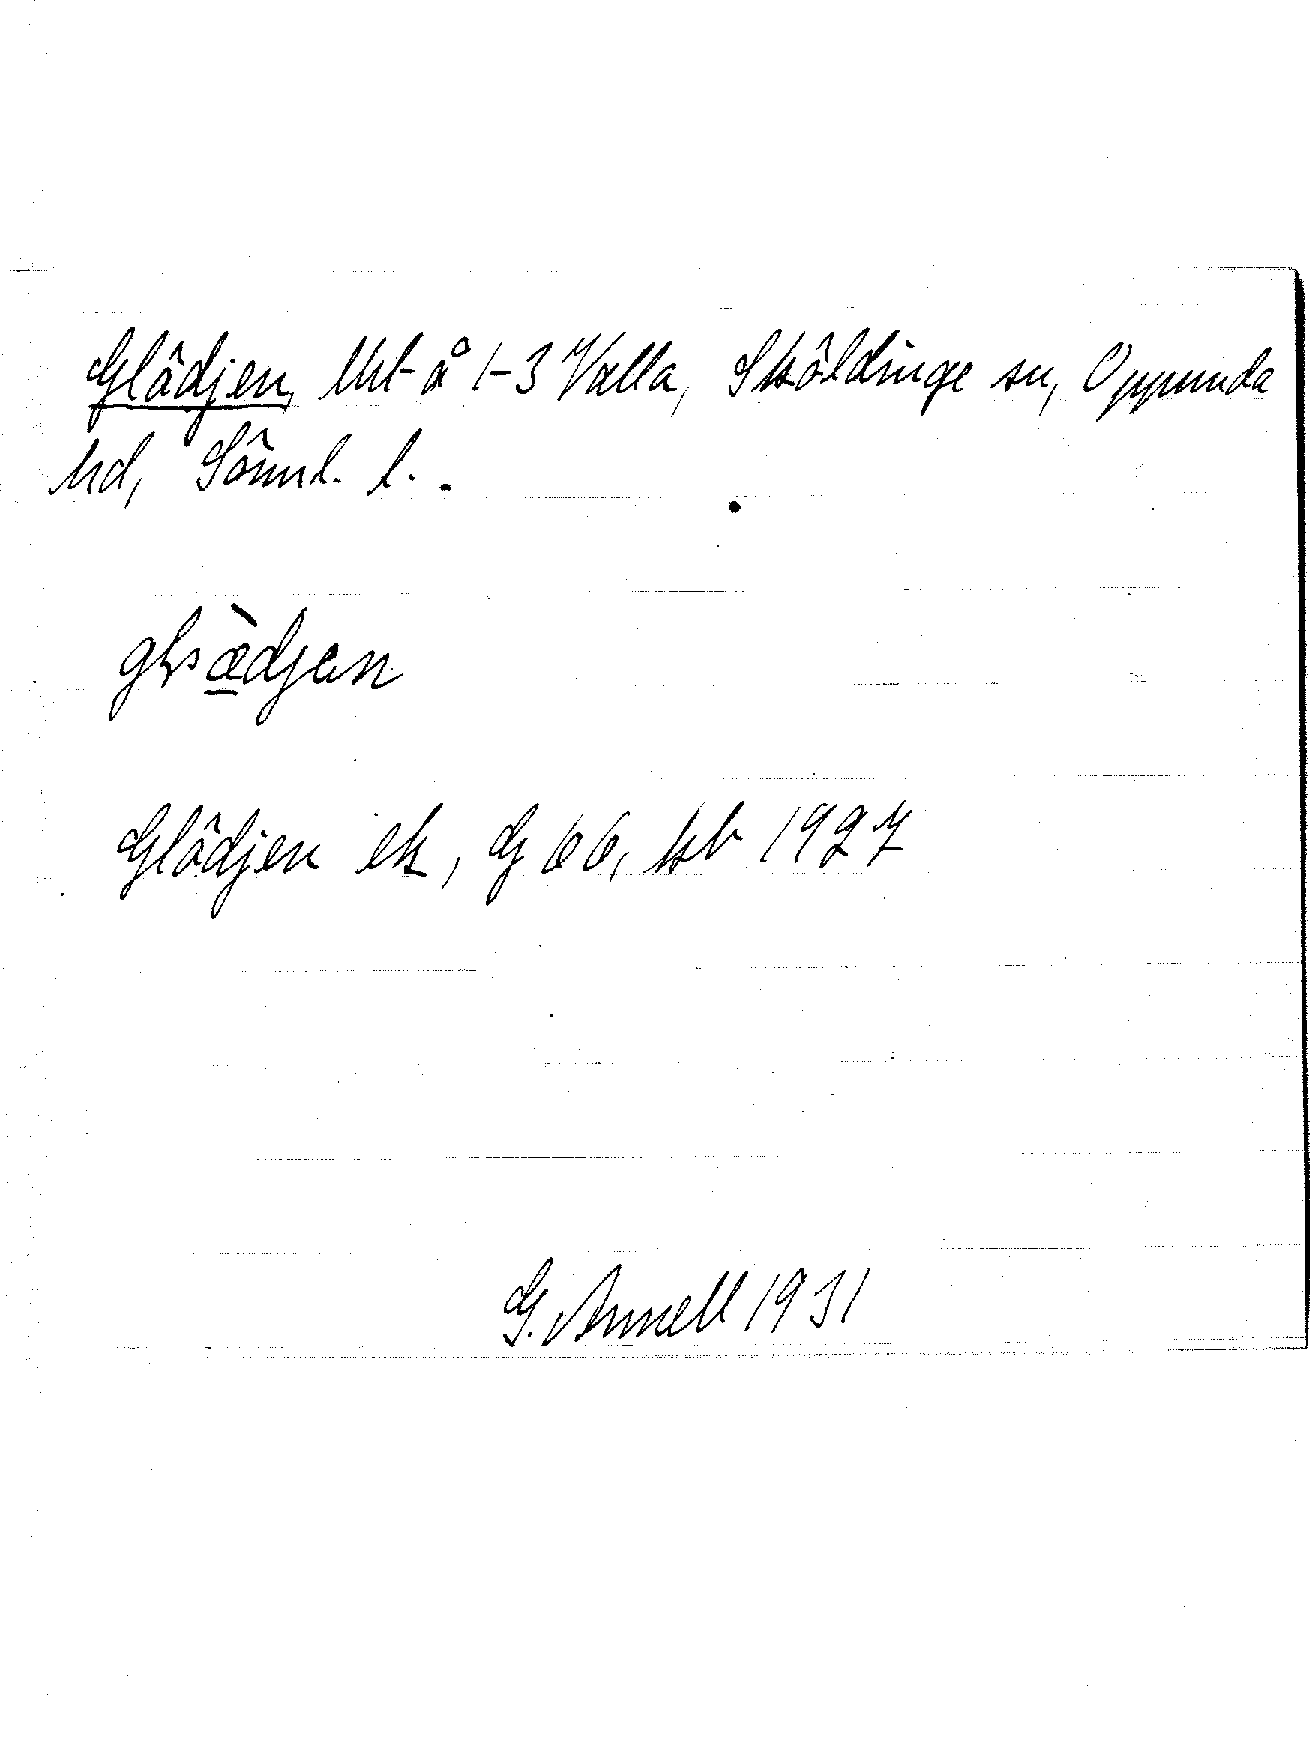 Glädjen, lht å 1-3 Valla, Sköldinge sn, Oppunda
hd, Söml. l..
glàdjen
Glädjen ek, G 66, kb 1927
G. Annell 1931